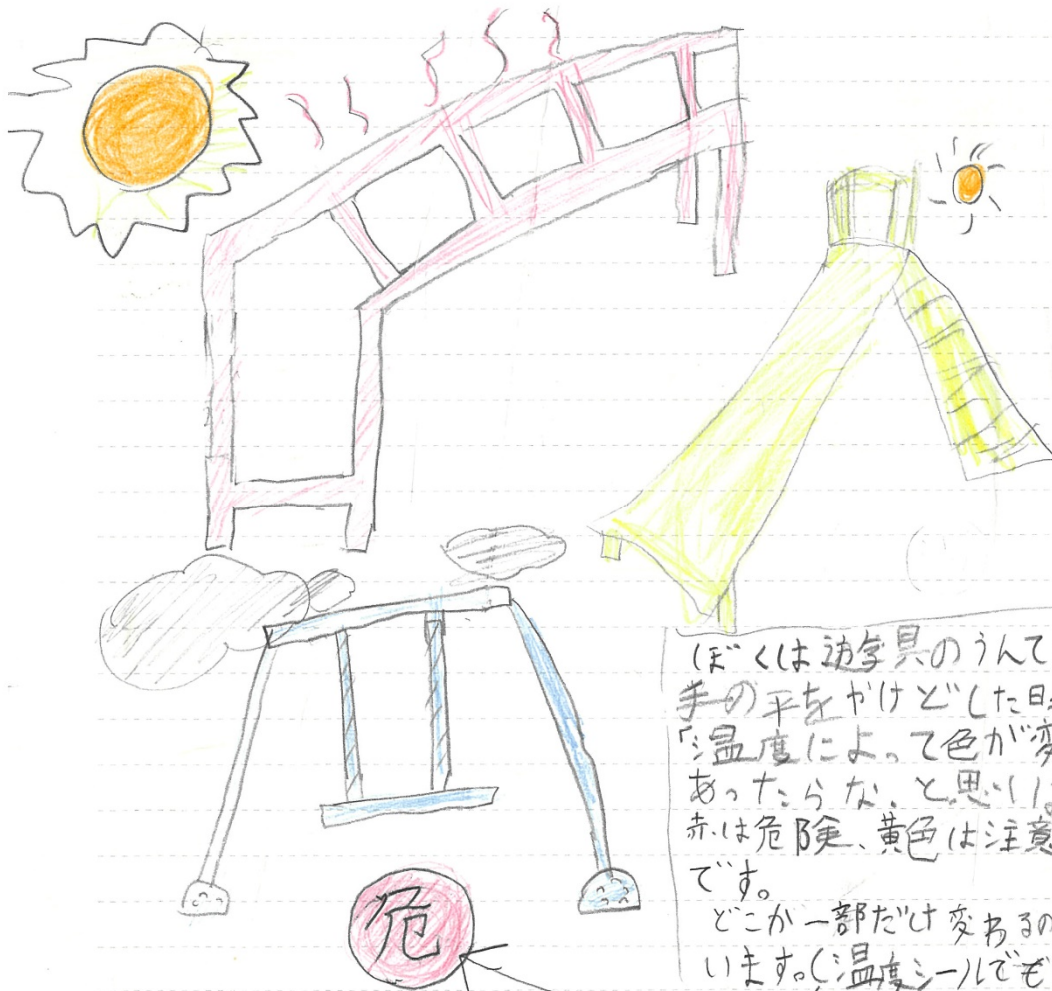 危
ぼくは遊具のうんて
手の平をやけどした日
「温度によって色が変
あったらな、と思い
赤は危険、黄色は注意
です。
どこか一部だけ変わるの
います。(温度シールでも